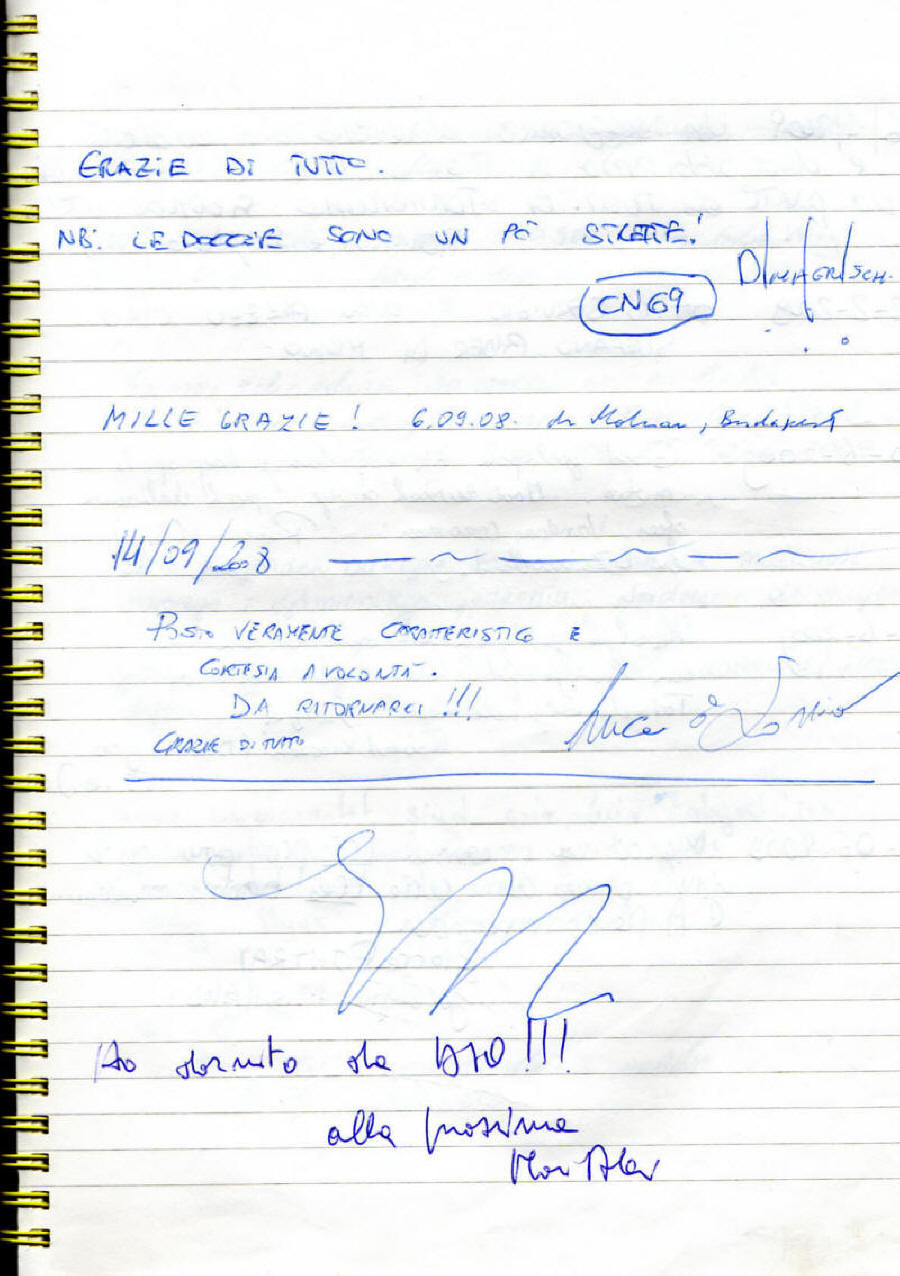 GRAZIE DI TUTTO.
NB: LE DOCCIE SONO UN PÒ STRETTE!
CN69
MILLE GRAZIE! 6.09.08. dr Molnar, Budapest
14/09/2008
POSTO VERAMENTE CARATTERISTICO E
CORTESIA A VOLONTÀ.
DA RITORNARCI!!!
GRAZIE DI TUTTO
Luca
Ho dormito da DIO!!!
alla prossima